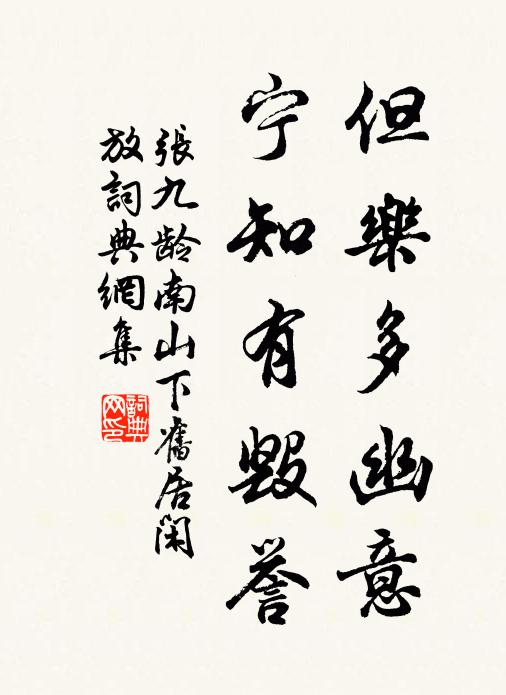 但樂多幽意
宁知有毀誉
張九龄南山下舊居閑
放詞典網集
詞典网印